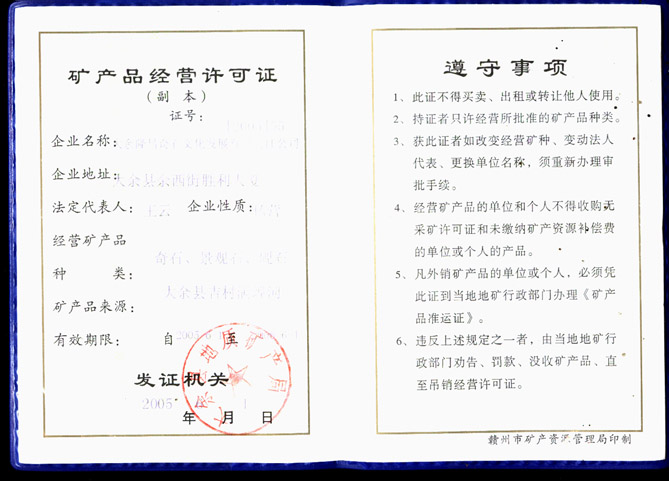 矿产品经营许可证
（副 本）
证号：
企业名称：
企业地址：大余县余西街胜利大
法定代表人：王云 企业性质：
经营矿产品
种 类：奇石、景观石、
矿产品来源：大余县吉村
有效期限：自 2005 至
发证机关
大余县地质矿产局
2005 年 月 1 日
遵守事项
1、此证不得买卖、出租或转让他人使用。
2、持证者只许经营所批准的矿产品种类。
3、获此证者如改变经营矿种、变动法人
代表、更换单位名称，须重新办理审
批手续。
4、经营矿产品的单位和个人不得收购无
采矿许可证和未缴纳矿产资源补偿费
的单位或个人的产品。
5、凡外销矿产品的单位或个人，必须凭
此证到当地地矿行政部门办理《矿产
品准运证》。
6、违反上述规定之一者，由当地地矿行
政部门劝告、罚款、没收矿产品、直
至吊销经营许可证。
赣州市矿产资源管理局印制